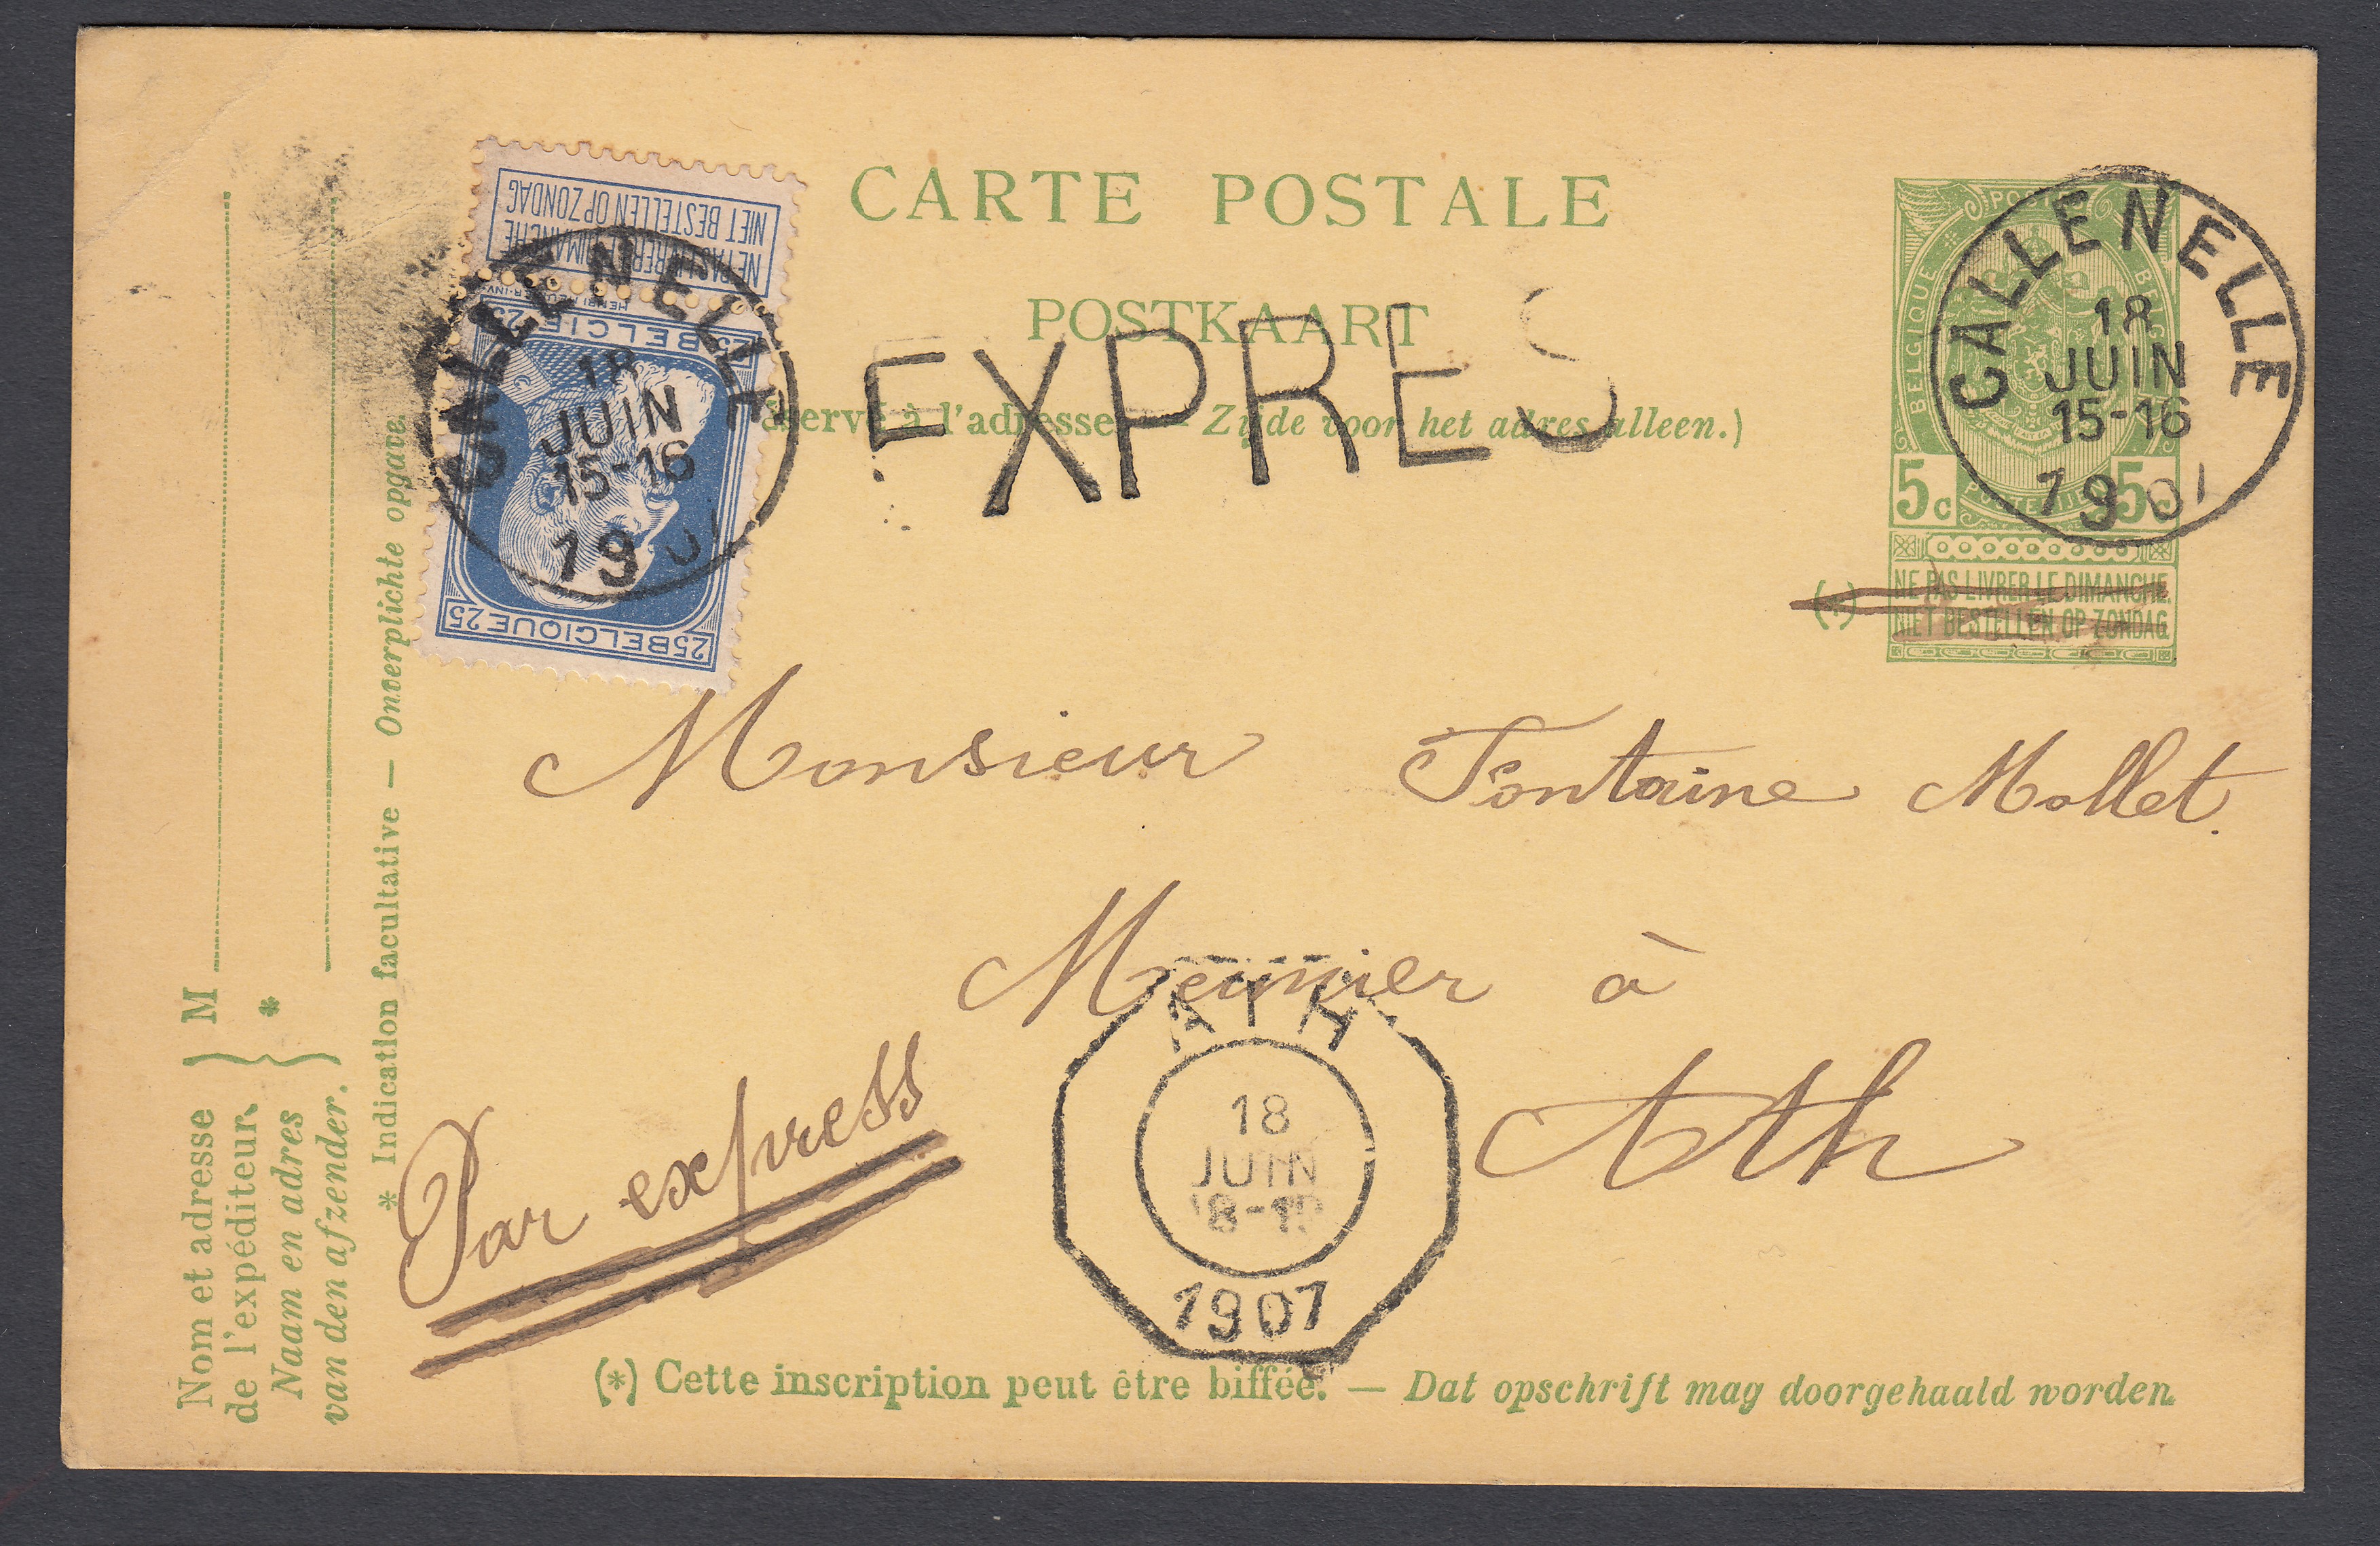 CARTE POSTALE
POSTKAART
servé à l'adresse — Zijde voor het adres alleen.)
EXPRES
NE PAS LIVRER LE DIMANCHE
NIET BESTELLEN OP ZONDAG
25 BELGIE 25
25 BELGIQUE 25
CALLENELLE
18
JUIN
15-16
190
BELGIQUE
5c 5
CALLENELLE
18
JUIN
15-16
190
(*)
NE PAS LIVRER LE DIMANCHE.
NIET BESTELLEN OP ZONDAG
Monsieur Fontaine Mollet.
Meunier à
Ath
Par express
ATH
18
JUIN
1907
Nom et adresse
de l'expéditeur.
} M
Naam en adres
van den afzender.
} *
* Indication facultative — Onverplichte opgave.
(*) Cette inscription peut être biffée. — Dat opschrift mag doorgehaald worden.